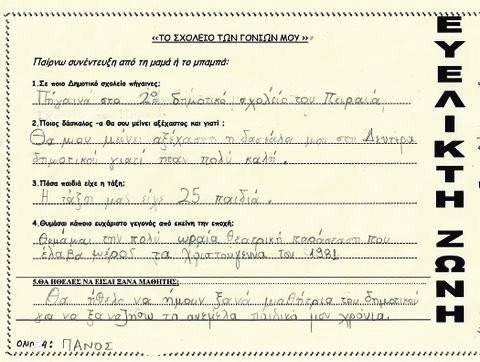 «ΤΟ ΣΧΟΛΕΙΟ ΤΩΝ ΓΟΝΙΩΝ ΜΟΥ»
Παίρνω συνέντευξη από τη μαμά ή το μπαμπά:
1.Σε ποιο Δημοτικό σχολείο πήγαινες;
Πήγαινα στο 2ο δημοτικό σχολείο του Πειραιά
2.Ποιος δάσκαλος -α θα σου μείνει αξέχαστος και γιατί ;
Θα μου μείνει αξέχαστη η δασκάλα μου στη Δευτέρα
δημοτικού γιατί ήταν πολύ καλή.
3.Πόσα παιδιά είχε η τάξη;
Η τάξη μας είχε 25 παιδιά.
4.Θυμάσαι κάποιο ευχάριστο γεγονός από εκείνη την εποχή;
Θυμάμαι την πολύ ωραία θεατρική παράσταση που
έλαβα μέρος τα Χριστούγεννα του 1981
5.ΘΑ ΗΘΕΛΕΣ ΝΑ ΕΙΣΑΙ ΞΑΝΑ ΜΑΘΗΤΗΣ;
Θα ήθελα να ήμουν ξανά μαθήτρια του δημοτικού
για να ξαναζήσω τα ανέμελα παιδικά μου χρόνια.
ΠΑΝΟΣ
ΕΥΕΛΙΚΤΗ ΖΩΝΗ